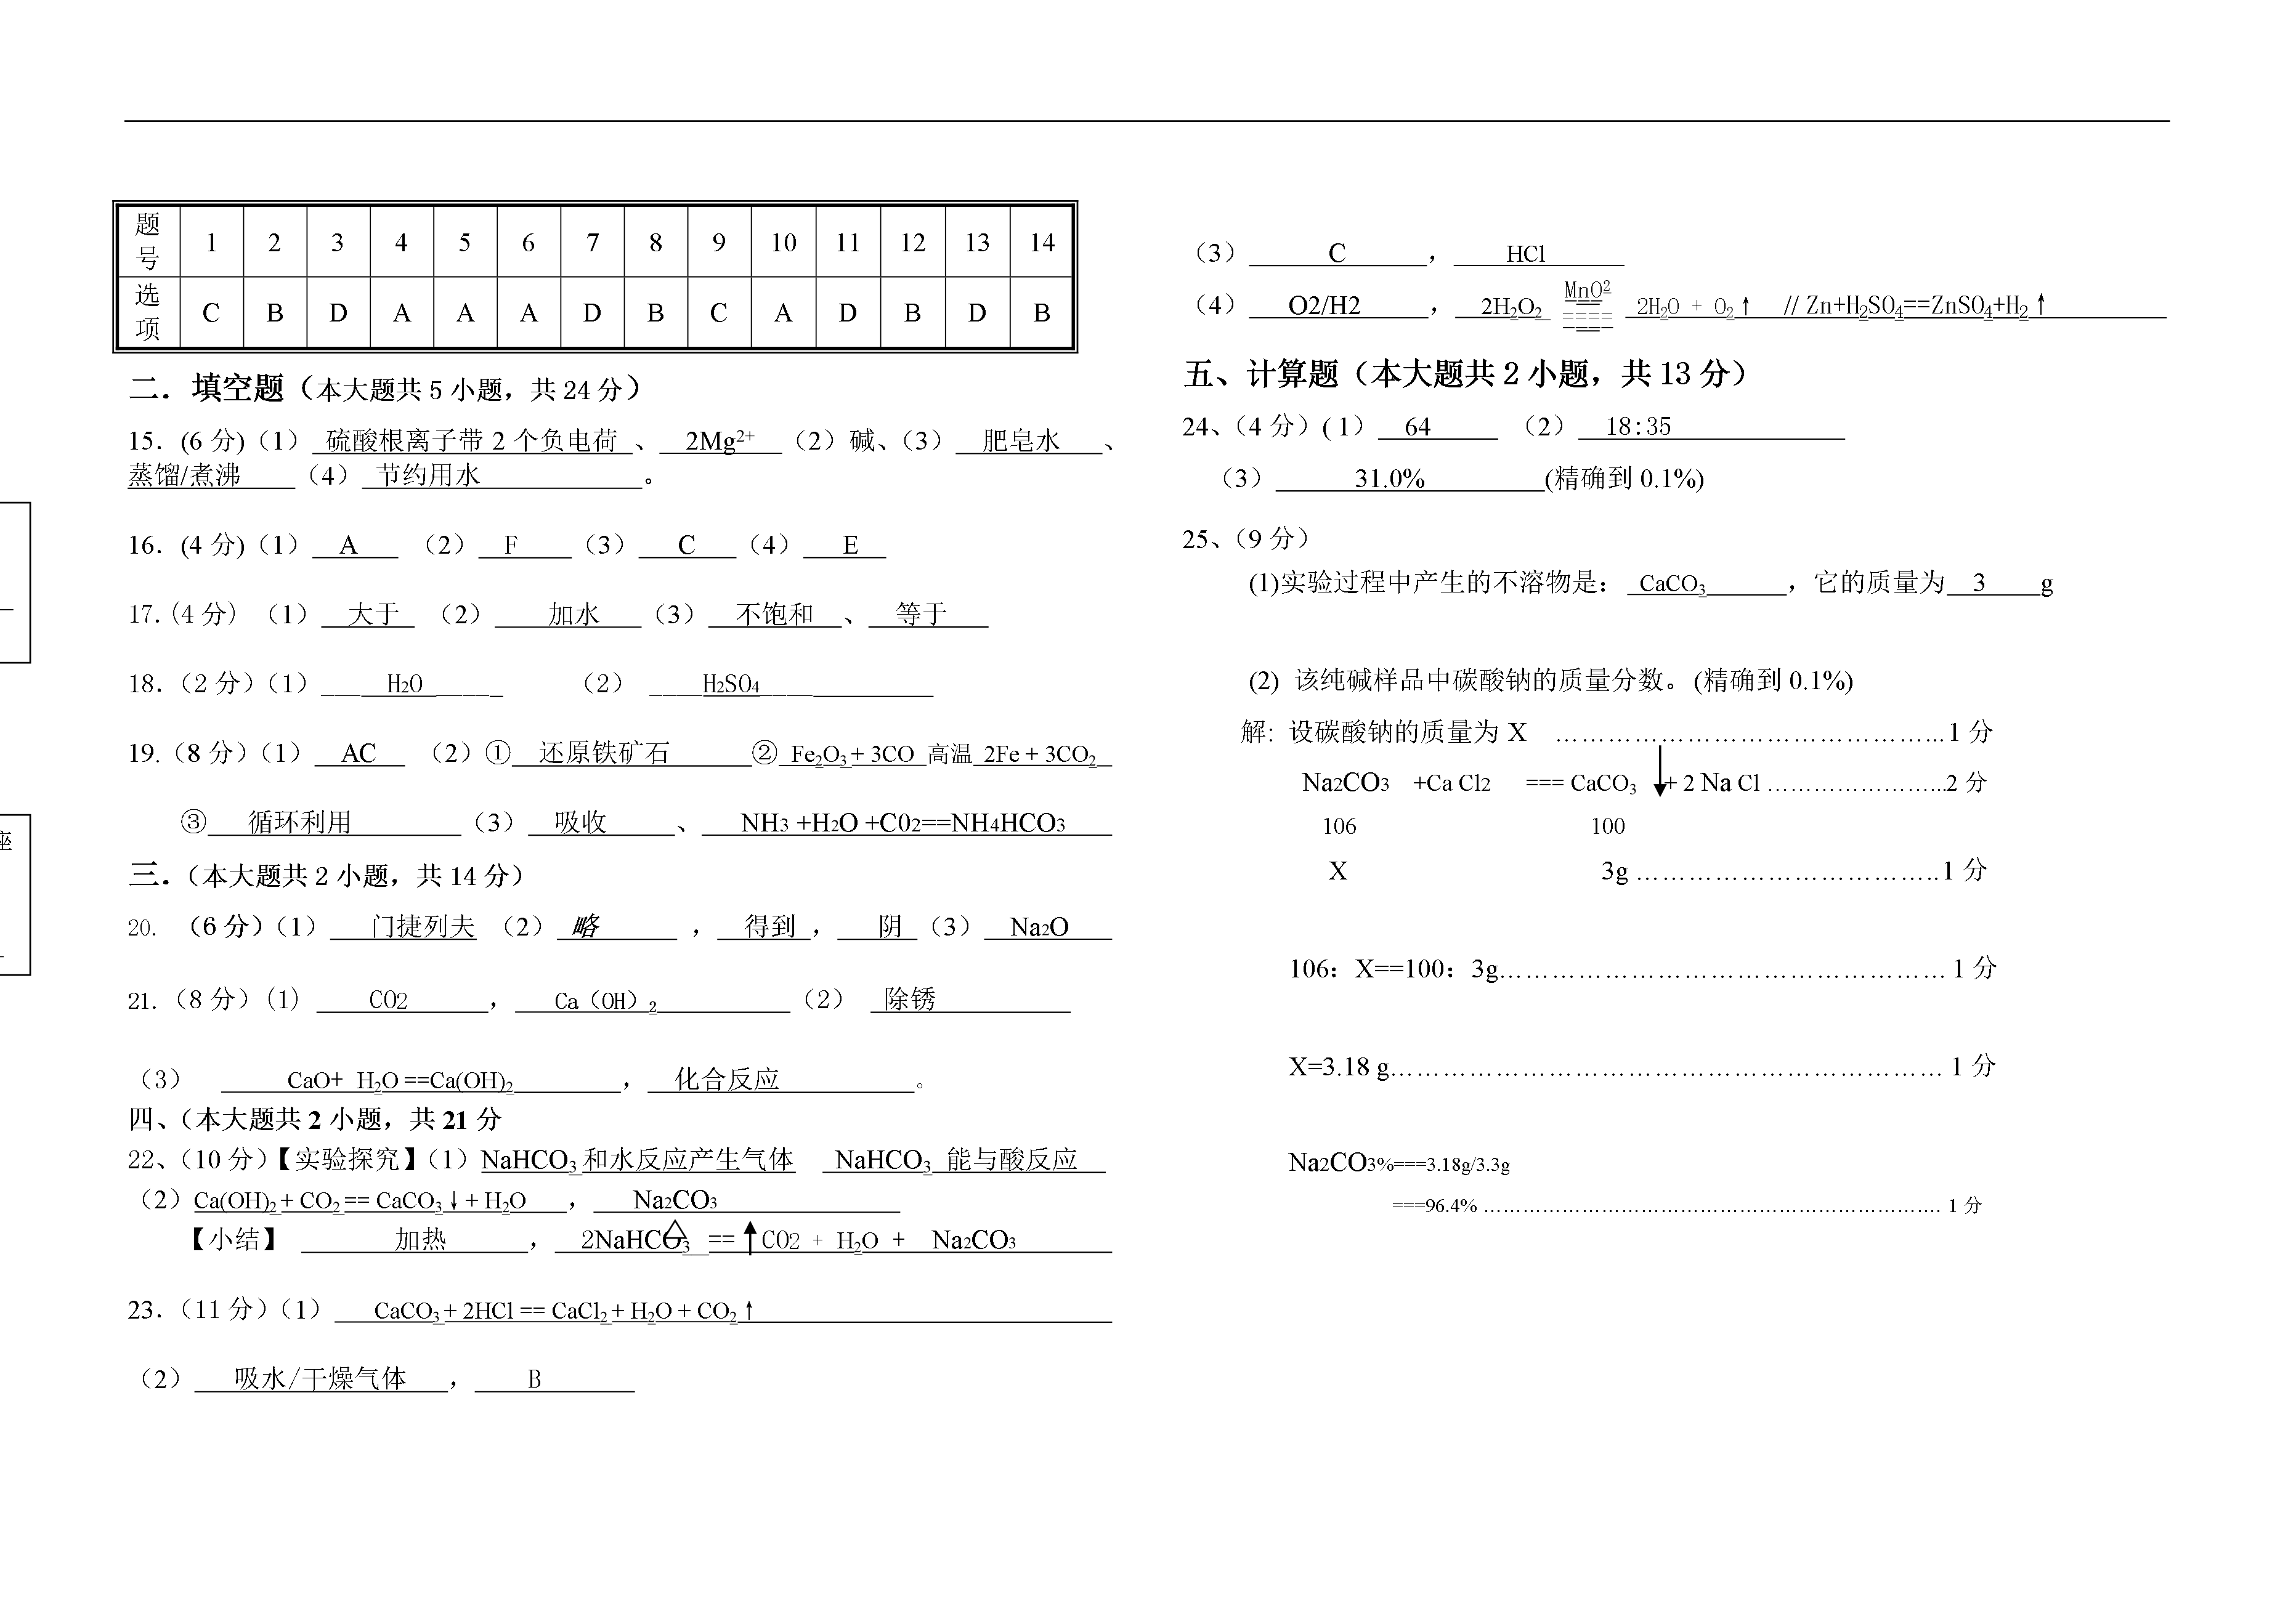 题号 1 2 3 4 5 6 7 8 9 10 11 12 13 14
选项 C B D A A A D B C A D B D B
二．填空题（本大题共5小题，共24分）
15．(6分)（1） 硫酸根离子带2个负电荷 、 2Mg²⁺ （2）碱、（3） 肥皂水 、
蒸馏/煮沸 （4） 节约用水 。
16．(4分)（1） A （2） F （3） C （4） E
17.（4分）（1） 大于 （2） 加水 （3） 不饱和 、 等于
18.（2分）（1） H₂O （2） H₂SO₄
19.（8分）（1） AC （2）① 还原铁矿石 ② Fe₂O₃ + 3CO 高温 2Fe + 3CO₂
③ 循环利用 （3） 吸收 、 NH₃ +H₂O +C0₂==NH₄HCO₃
三．（本大题共2小题，共14分）
20. （6分）（1） 门捷列夫 （2） 略 ， 得到 ， 阴 （3） Na₂O
21.（8分）(1) CO2 ， Ca（OH）₂ （2） 除锈
（3） CaO+ H₂O ==Ca(OH)₂ ， 化合反应 。
四、（本大题共2小题，共21分
22、（10分）【实验探究】（1）NaHCO₃ 和水反应产生气体 NaHCO₃ 能与酸反应
（2）Ca(OH)₂ + CO₂ == CaCO₃↓+ H₂O ， Na₂CO₃
【小结】 加热 ， 2NaHCO₃ △ == ↑CO2 + H₂O + Na₂CO₃
23.（11分）（1） CaCO₃ + 2HCl == CaCl₂ + H₂O + CO₂↑
（2） 吸水/干燥气体 ， B
座
（3） C ， HCl
（4） O2/H2 ， 2H₂O₂ MnO² ==== 2H₂O + O₂↑ // Zn+H₂SO₄==ZnSO₄+H₂↑
五、计算题（本大题共2小题，共13分）
24、（4分）( 1） 64 （2） 18:35
（3） 31.0% (精确到0.1%)
25、（9分）
(1)实验过程中产生的不溶物是： CaCO₃ ，它的质量为 3 g
(2) 该纯碱样品中碳酸钠的质量分数。(精确到0.1%)
解: 设碳酸钠的质量为X ……………………………………...1分
Na₂CO₃ +Ca Cl₂ === CaCO₃ ↓+ 2 Na Cl …………………...2分
106 100
X 3g ……………………………..1分
106：X==100：3g……………………………………………1分
X=3.18 g………………………………………………………1分
Na₂CO₃%===3.18g/3.3g
===96.4% ……………………………………………………………1分